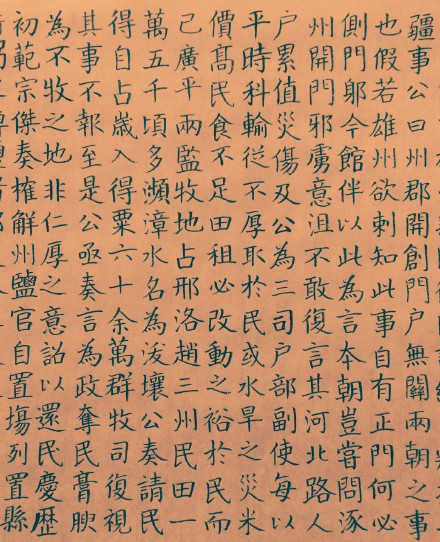 疆事公曰州郡開創門戶無關兩朝之事
也假若雄州欲刺知此事自有正門何必
側門鄓今館伴以此為言本朝豈嘗問涿
州開門邪虜意沮不敢復言其河北路人
户累值災傷及公為三司户部副使每以
平時科輸從不厚取於民或水旱之災米
價髙民食不足田租必改動之裕於民而
己廣平兩監牧地占邢洛趙三州民田一
萬五千頃多瀕漳水名為浚壤公奏請民
得自占嵗入得粟六十余萬群牧司復視
其事不報至是公亟奏言為政奪民膏腴
為不牧之地非仁厚之意詔以還民慶歷
初範宗傑奏榷解州鹽官自置場列置縣